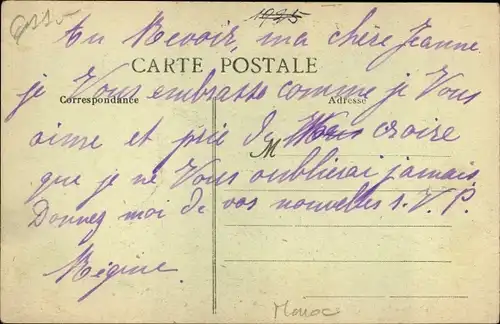 1925
Au Revoir, ma chère Jeanne
CARTE POSTALE
je Vous embrasse comme je Vous
Correspondance Adresse
aime et prie de croire
M
que je ne Vous oublierai jamais,
Donnez moi de vos nouvelles s.V.P.
Régine.
Maroc